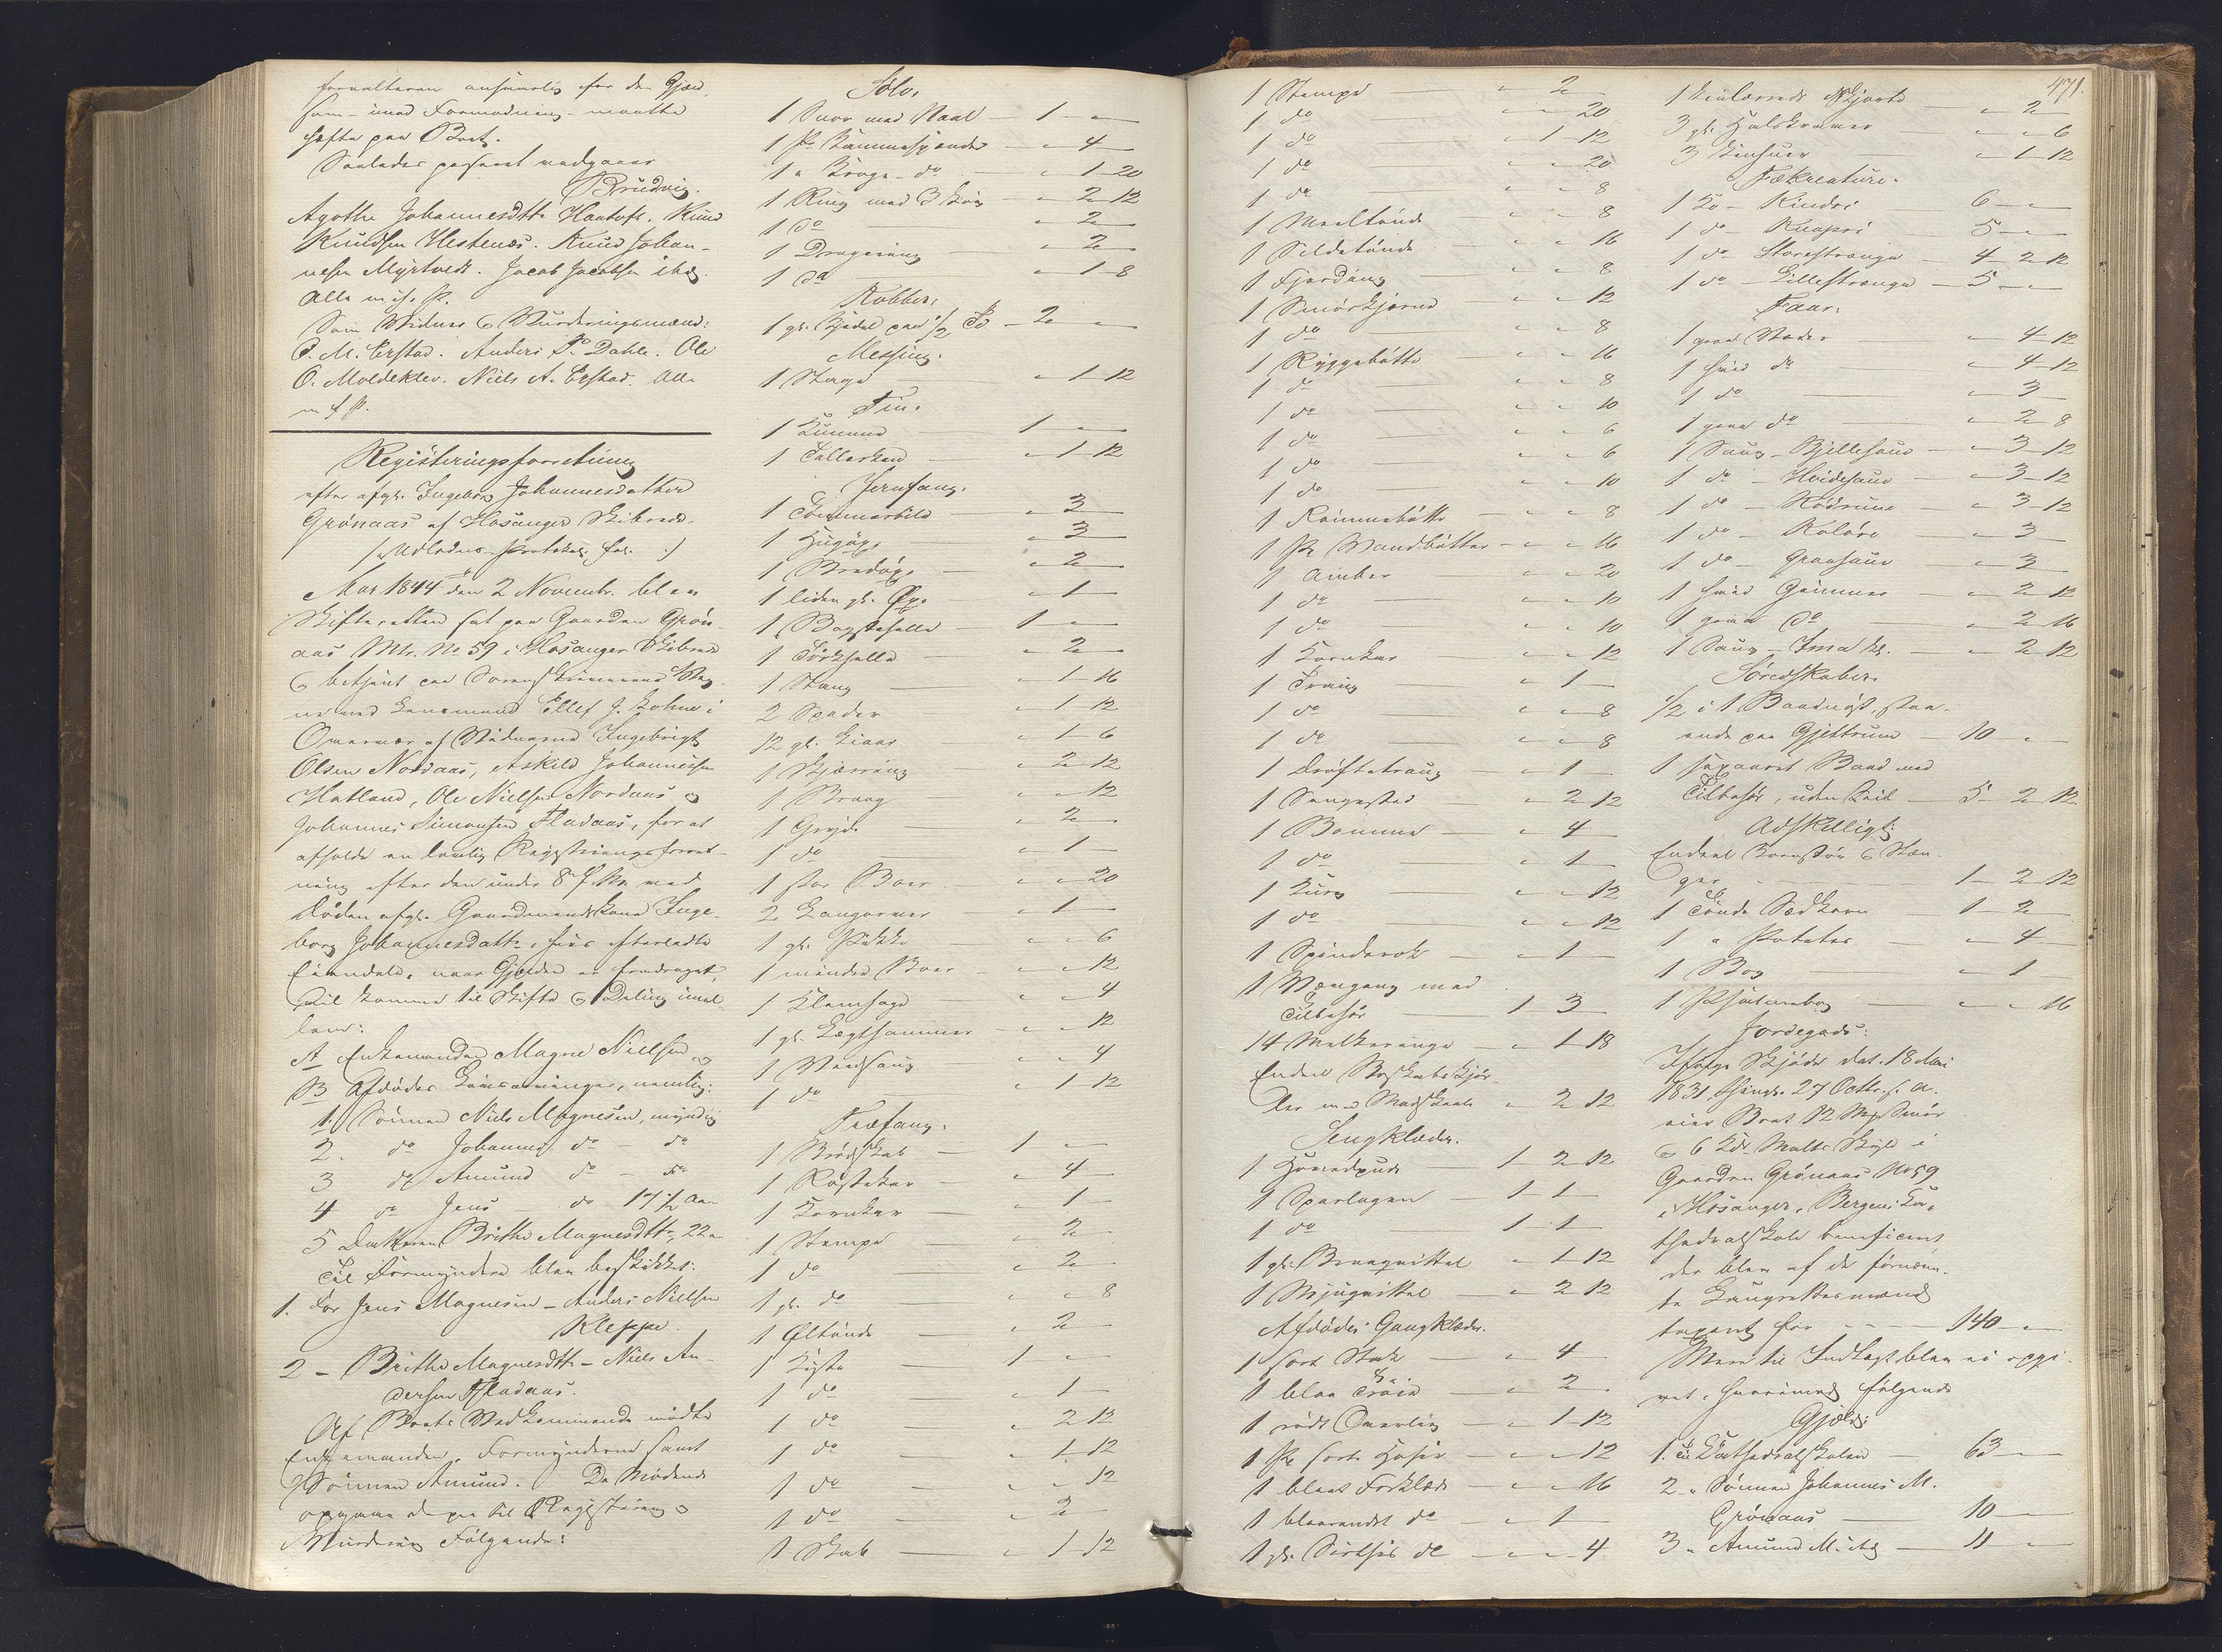 forvalteren ansvarlig for den Gjæld,
som imod Formodning maatte
hæfte paa Boet.
Saaledes passeret vedgaaer
Bruedvig.
Agathe Johannesdtt. Hantoft. Knud
Knudsen Hestenæs. Knud Johan-
nesen Myrtvedt. Jacob Jacobsen ibd.
Alle m. p. P.
Som Vidner & Vurderingsmænd:
O. M. Erstad. Anders P. Dahle. Ole
O. Moldeklev. Niels A. Erstad. Alle
m p P.
Registeringsforretning
efter afgl. Ingeborg Johannesdatter
Grønaas af Hosanger Skibrede.
/: Udlodns. Protokol fol. :/
Aar 1844 den 2 Novembr. blev
Skifteretten sat paa Gaarden Grøn-
aas Mtr. No 59 i Hosanger Skibrede
& betjent paa Sorenskriverens Veg-
ne ved Lensmand Ellef J. Hohne i
Overvær af Vidnerne Ingebrigt
Olsen Nordaas, Askild Johannessen
Hatland, Ole Nielsen Nordaas &
Johannes Simonsen Fladaas, for at
afholde en lovlig Registeringsforret-
ning efter den under 8 f. M. ved
Døden afgl. Gaardmandskone Inge-
borg Johannesdatt., hvis efterladte
Eiendele, naar Gjælden er fradraget,
vil komme til Skifte & Deling imel-
lem:
A Enkemanden Magne Nielsen, og
B Afdødes Livsarvinger, nemlig:
1. Sønnen Niels Magnesen, myndig
2. do Johannes do - do
3 do Amund do - do
4 do Jens do 17 1/2 Aar
5 Datteren Brithe Magnesdtt., 22 a
Til Formyndere blev beskikket:
1. For Jens Magnesen - Anders Nielsen
Kleppe.
2 - Brithe Magnesdtt. - Niels An-
dersen Fladaas.
Af Boets Vedkommende mødte
Enkemanden, Formynderne samt
Sønnen Amund. De Mødende
opgave da paa til Registering &
Vurdering Følgende:
Sølv.
1 Snor med Naal - 1 - "
1 Pr. Kammespænder - " 4
1 " Krage - do - " 1 - 20
1 Ring med 3 Løv - " 2 - 12
1 do - " 2
1 Dragering - " 2
1 do - " 1 - 8
Kobber.
1 gl. Kjedel paa 1/2 Td - 2 "
Messing.
1 Stage - " 1 - 12
Tin.
1 Kumme - 1 - "
1 Tallerken - " 1 - 12
Jernfang.
1 Tømmerbile - " 3
1 Hugøxe - " 3
1 Bredøxe - " 2
1 liden gl. Øxe - " 1
1 Bagstehelle - 1 - "
1 Tørkhelle - " 2
1 Stang - " 1 - 16
2 Spader - " 1 - 12
12 gl. Liaar - " 1 - 6
1 Skjæring - " 2 - 12
1 Braag - " " 12
1 Gryde - " 2
1 do - " 1
1 stor Boer - " " 20
2 Langorver - " 1
1 gl. Pikke - " " 6
1 mindre Boer - " " 12
1 Klemsage - " " 4
1 gl. Lægthammer - " " 12
1 Vedsaug - " " 4
1 do - " 1 12
Træfang.
1 Brødskab - 1 "
1 Rostekar - " 4
1 Kornkar - " 1
1 Stampe - " 2
1 do - " 2
1 gl. do - " " 8
1 Øltønde - " 2
1 Kiste - 1 "
1 do - " 1
1 do - " 2 12
1 do - " 1 12
1 do - " " 12
1 do - " 2
1 Skab - " 1 12
1 Stampe - " 2
1 do - " " 20
1 do - " 1 12
1 do - " " 20
1 do - " " 8
1 Meeltønde - " " 8
1 Sildetønde - " " 16
1 Fjerding - " " 8
1 Smørkjerne - " " 12
1 do - " " 8
1 Ryggebøtte - " " 16
1 do - " " 8
1 do - " " 10
1 do - " " 6
1 do - " " 6
1 do - " " 10
1 Rømmebøtte - " " 8
1 Pr Vandbøtter - " " 16
1 Amber - " " 20
1 do - " " 10
1 do - " " 10
1 Kornkar - " " 12
1 Traug - " 1
1 do - " " 8
1 do - " " 8
1 Drøftetraug - " 1
1 Sengested - " 2 12
1 Bomme - " 4
1 do - " 1
1 Kurv - " " 12
1 do - " " 12
1 Spinderok - " 1
1 Vævgang med
Tilbehør - 1 3
14 Melkeringe - " 1 18
Endeel Boskabskjør-
ler med Madskaale - " 2 12
Sengklæder.
1 Hovedpude - 1 2 12
1 Sparlagen - 1 1
1 do - 1 1
1 gl. Braaqvittel - " 1 12
1 Mjugqvittel - " 2 12
Afdødes Gangklæder.
1 sort Stak - " 4
1 blaa Trøie - " 2
1 rødt Overliv - " 1 12
1 Pr sorte Hoser - " " 12
1 blaat Forklæde - " " 16
1 blaarandet do - " 1
1 gl. Sirtses do - " " 4
471.
1 Linlærreds Skjorte - " 2
3 gl. Halskraver - " " 6
3 Linhuer - " 1 12
Fækreature.
1 Ko - Rindei - 6 "
1 do - Knapei - 5 "
1 do - Storestrange - 4 2 12
1 do - Lillestrange - 5 "
Faar.
1 graa Væder - " 4 12
1 hvid do - " 4 12
1 do - " 3
1 graa do - " 2 8
1 Sau - Bjellesaue - " 3 12
1 do - Hvidesaue - " 3 12
1 do - Rødrune - " 3 12
1 do - Koløre - " 3
1 do - Graasaue - " 3
1 hvid Gimmer - " 2 12
1 graa do - " 2 16
1 Sau - Ima kl. - " 2 12
Søredskaber.
1/2 i 1 Baadnøst, staa-
ende paa Gjettrum - 10 "
1 sexaaret Baad med
Tilbehør, uden Seil - 5 2 12
Adskilligt.
Endeel Kornstør & Stæn-
ger - 1 2 12
1 Tønde Sædkorn - 1 2
1 " Poteter - " 4
1 Bog - " 1
1 Psalmebog - " " 16
Jordegods:
Ifølge Skjøde dat. 18 Mai
1831, thingl. 27 Octbr. s. A.
eier Boet 12 Mrk Smør
& 6 Kdr. Malts Skyld i
Gaarden Grønaas No 59
i Hosanger, Bergens Ca-
thedralskole beneficeret,
der blev af de fornævn-
te Laugrettesmænd
taxeret for - 140 "
Mere til Indtægt blev ei opgi-
vet, hvorimod følgende
Gjæld:
1. Til Cathedralskolen - 63
2. " Sønnen Johannes M.
Grønaas - 10
3. " Amund M. ibd - 11 "